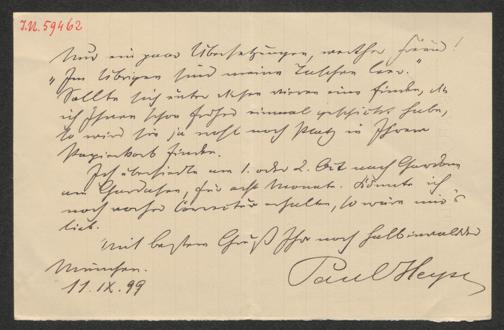 I.N. 59462
Nur ein paar Übersetzungen, werther Freund!
"Im Übrigen sind meine Taschen leer."
Sollte sich unter diesen vieren eine finden, die
ich Ihnen schon früher einmal geschickt habe,
so wird sie ja wohl noch Platz in Ihrem
Papierkorb finden.
Ich übersiedle am 1. oder 2. Oct nach Gardone
am Gardasee, für acht Monate. Könnte ich
noch vorher Correctur erhalten, so wäre mir's
lieb.
Mit bestem Gruß Ihr noch halb invalider
München.
11. IX. 99
Paul Heyse